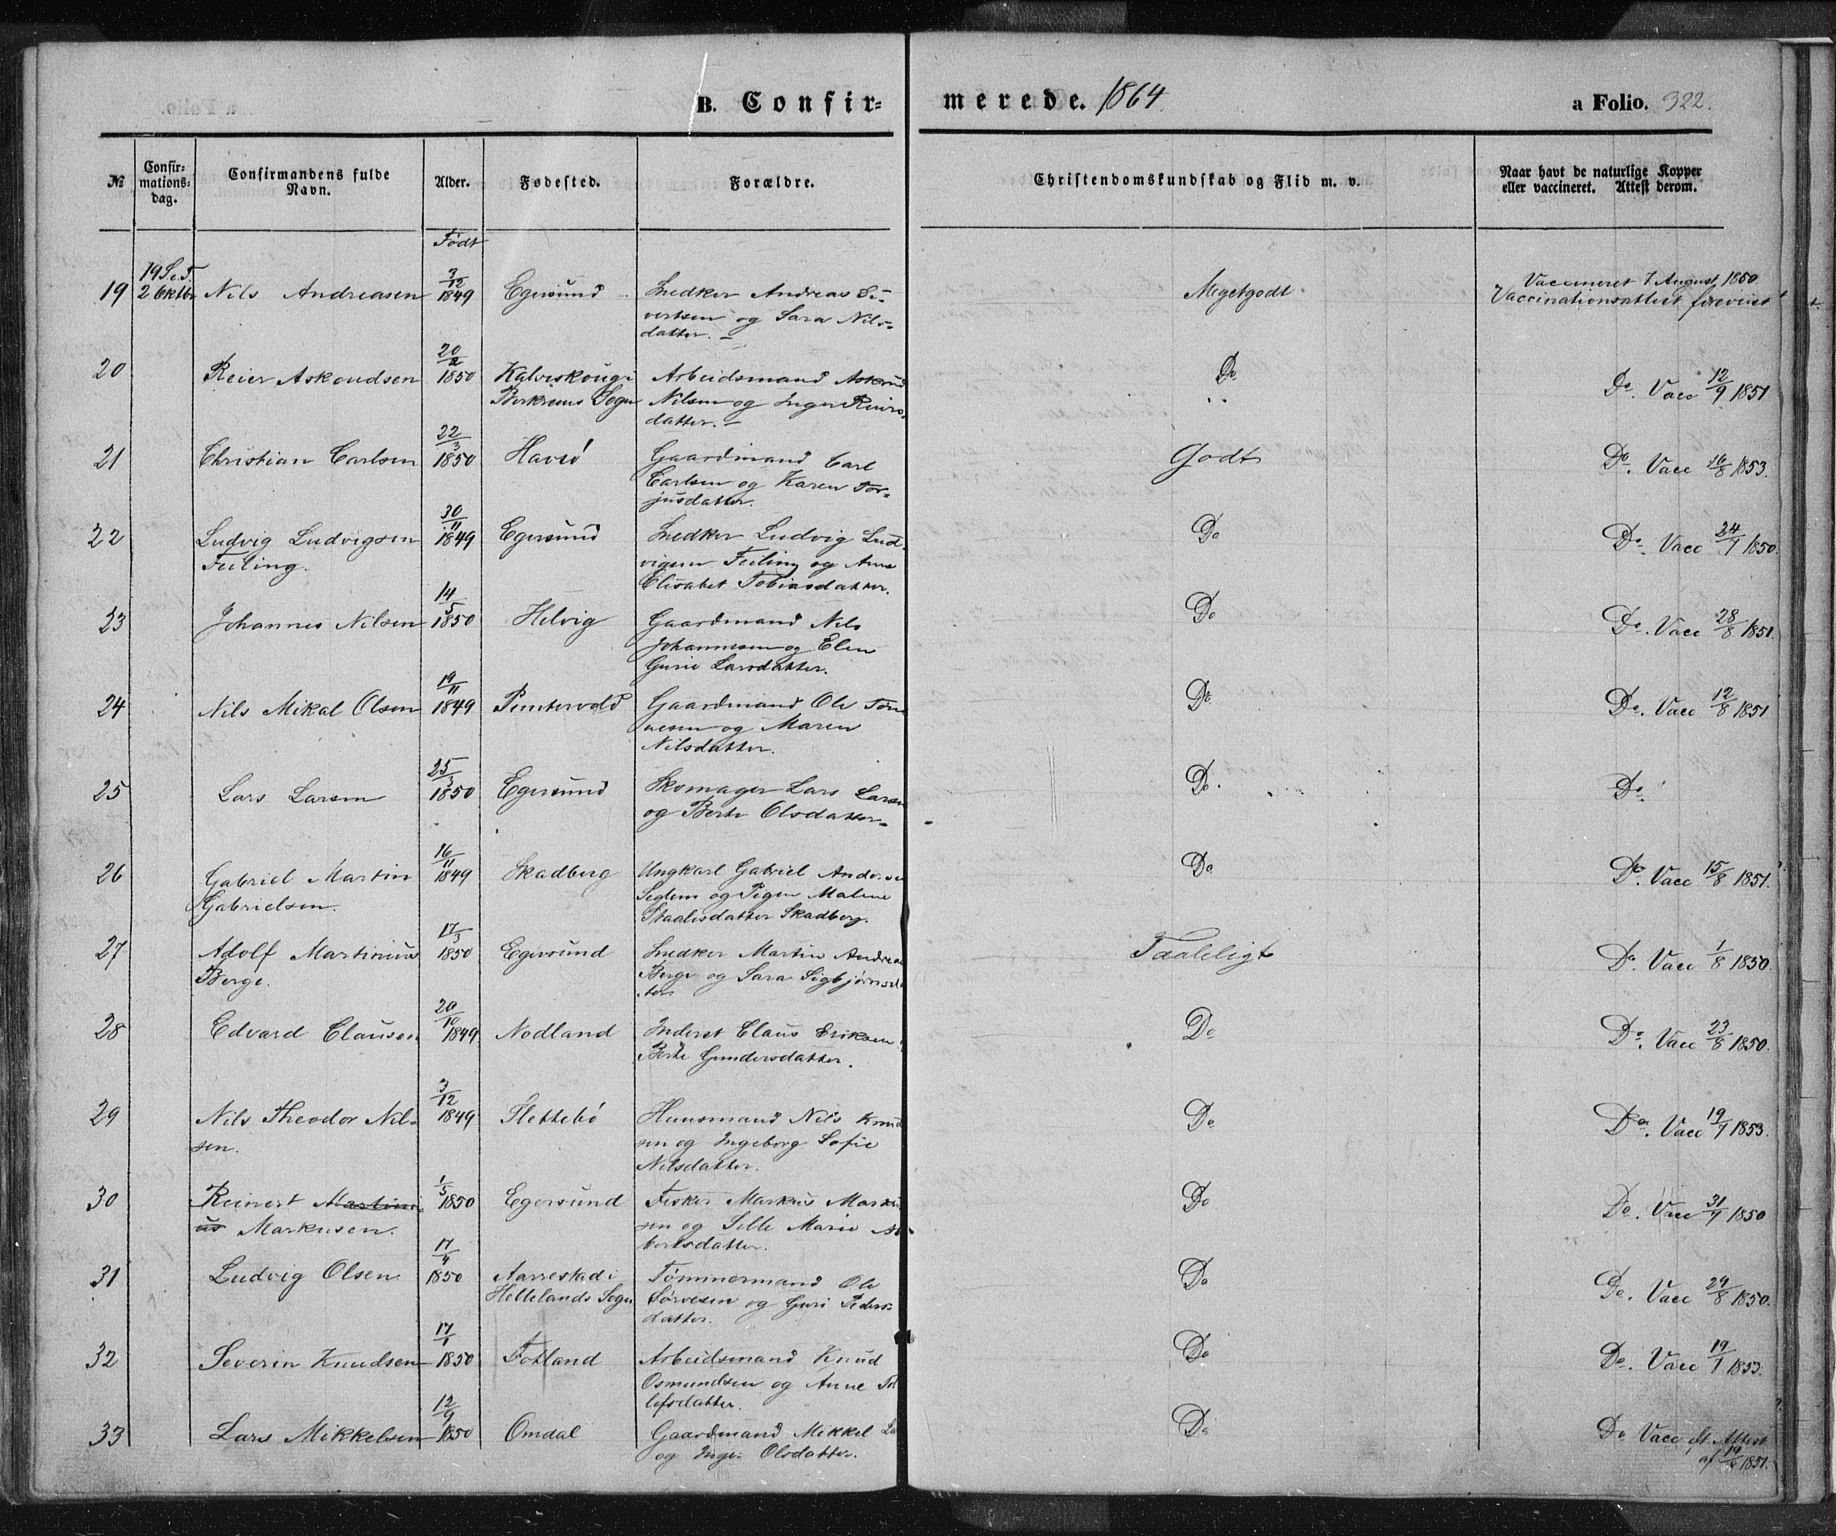 B. Confir- merede. 1864. a Folio. 322.
№ Confir-mations-dag. Confirmandens fulde Navn. Alder. Fødested. Forældre. Christendomskundskab og Flid m. v. Naar havt de naturlige Kopper eller vaccineret. Attest derom.
Født
19 S. e. T.
19 2 Oktbr Nils Andreasen 3/12 1849 Egersund Snedker Andreas Si- Megetgodt Vaccineret 7 August 1850
vertsen og Sara Nils- Vaccinationsattest foreviist
datter.
20 Reier Askoudsen 20/2 1850 Kalveskoug i Arbeidsmand Do Do. Vacc 12/9 1851
Berkreims Sogn Nilsen og Inger Reiers-
datter.
21 Christian Carlsen 22/3 1850 Havsø Gaardmand Carl Godt Do. Vacc 16/8 1853.
Carlsen og Karen Tor-
jusdatter.
22 Ludvig Ludvigsen 30/11 1849 Egersund Snedker Ludvig Lud- Do Do. Vacc 24/7 1850.
Feiling. vigsen Feiling og Anne
Elisabet Tobiasdatter.
23 Johannes Nilsen 14/5 1850 Helvig Gaardmand Nils Do Do. Vacc 28/8 1851.
Johannesen og Elen
Gurie Larsdatter.
24 Nils Mikal Olsen 19/11 1849 Puntervold Gaardmand Ole Tøn- Do Do. Vacc 12/8 1851
nesen og Maren
Nilsdatter.
25 Lars Larsen 25/3 1850 Egersund Skomager Lars Larsen Do. Do.
og Berte Olsdatter.
26 Gabriel Martin 16/11 1849 Skadberg Ungkarl Gabriel Andersen Do Do. Vacc 15/8 1851.
Gabrielsen. Seglem og Pigen Malene
Staalesdatter Skadberg.
27 Adolf Martinius 17/3 1850 Egersund Snedker Martin Andreas Taaleligt Do. Vacc 1/8 1850.
Berge. Berge og Sara Sigbjørnsdat
ter.
28 Edvard Clausen 20/10 1849 Nodland Inderst Claus Eriksen Do Do. Vacc 23/8 1850.
Berte Gundersdatter.
29 Nils Theodor Nil- 3/12 1849 Slettebø Huusmand Nils Knud Do Do. Vacc 19/7 1853.
sen. sen og Ingeborg Sofie
Nilsdatter.
30 Reinert Martini 1/5 1850 Egersund Fisker Markus Marku Do Do. Vacc 31/7 1850
us Markusen. sen og Sille Marie As
børnsdatter.
31 Ludvig Olsen 17/4 1850 Aarrestad i Tømmermand Ole Do Do. Vacc 29/8 1850.
Hellelands Sogn Sørvesen og Guri Peders-
datter.
32 Severin Knudsen 17/1 1850 Fotland Arbeidsmand Knud Do Do. Vacc 19/7 1853.
Osmundsen og Anne Tol
lefsdatter.
33 Lars Mikkelsen 12/9 1850 Omdal Gaardmand Mikkel La Do Do Vacc Attest
og Inger Olsdatter. af 1851.